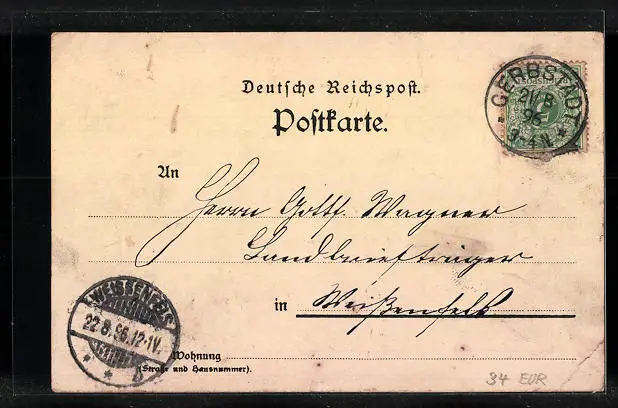 Deutsche Reichspost.
Postkarte.
GERBSTADT
21/8
96
An
Herrn Gottf. Wagner
Landbriefträger
in Weißenfels
WEISSENFELS
22.8.96.12-1V.
b
Wohnung
(Straße und Hausnummer).
34 EUR